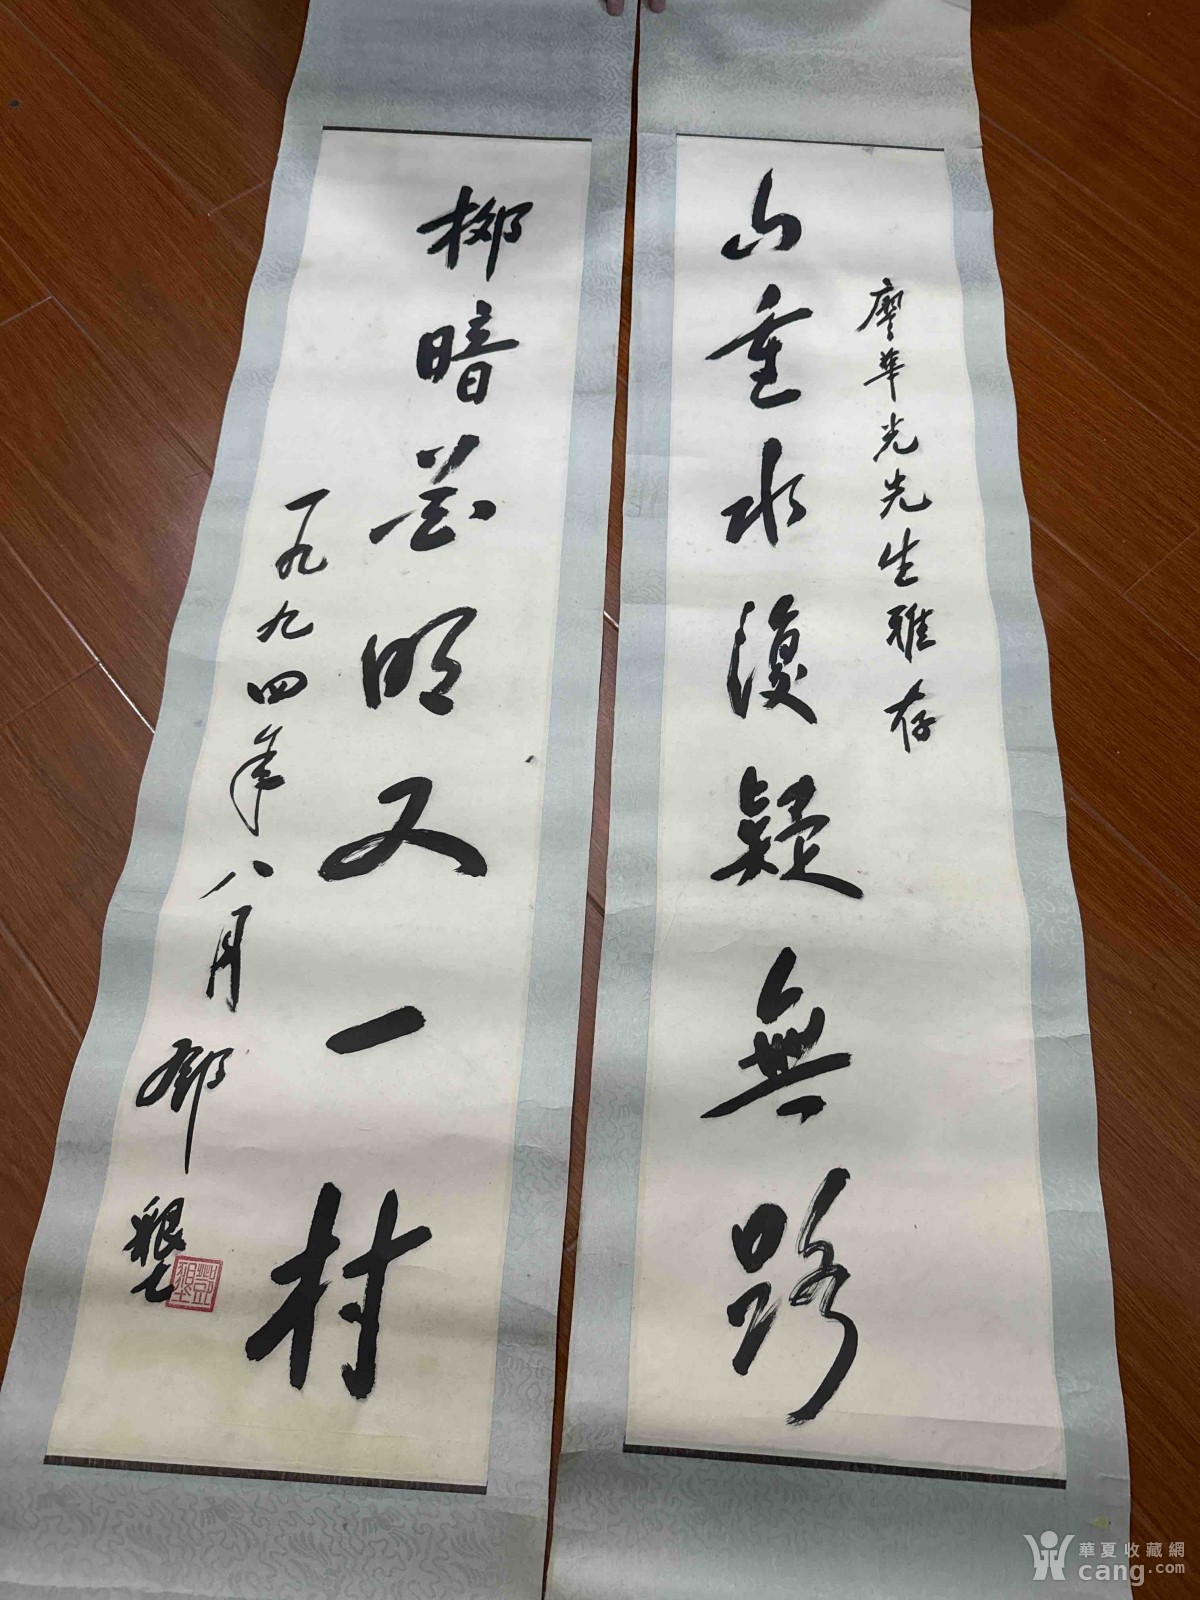 廖華光先生雅存
山重水復疑無路
柳暗花明又一村
一九九四年八月鄧墾
鄧墾
華夏收藏網
cang.com